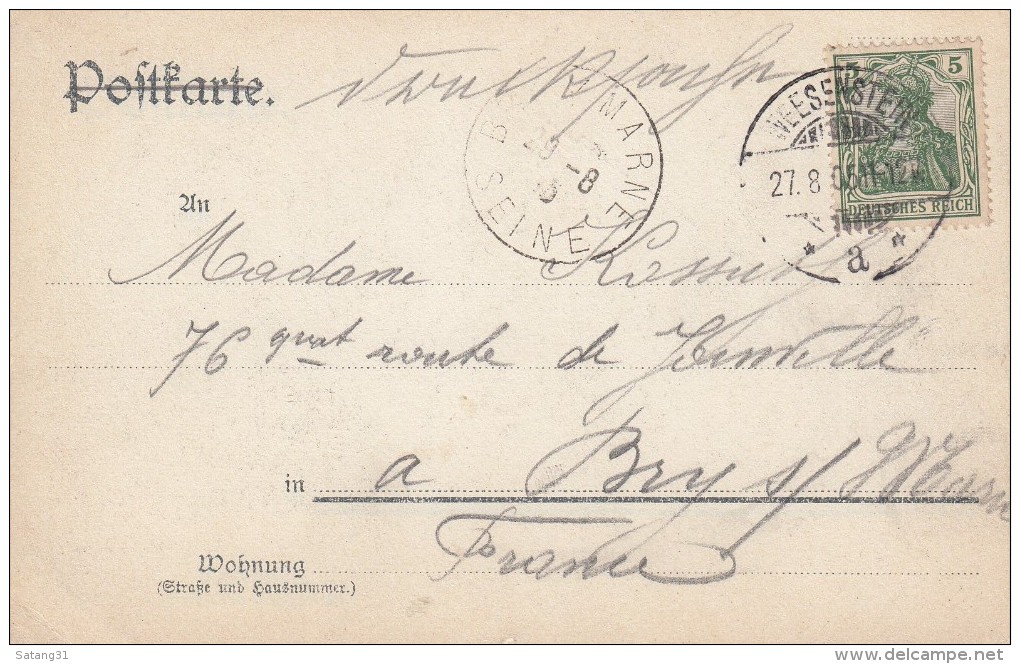 Postkarte.
Drucksache
5
DEUTSCHES REICH
WEESENSTEIN
27.8.05 11-12
* a *
B MARNE
29 -8
SEINE
An
Madame
76 quat route de Joinville
in a Bry s/ Marne
France
Wohnung
(Straße und Hausnummer.)
Satang31
delcampe.net